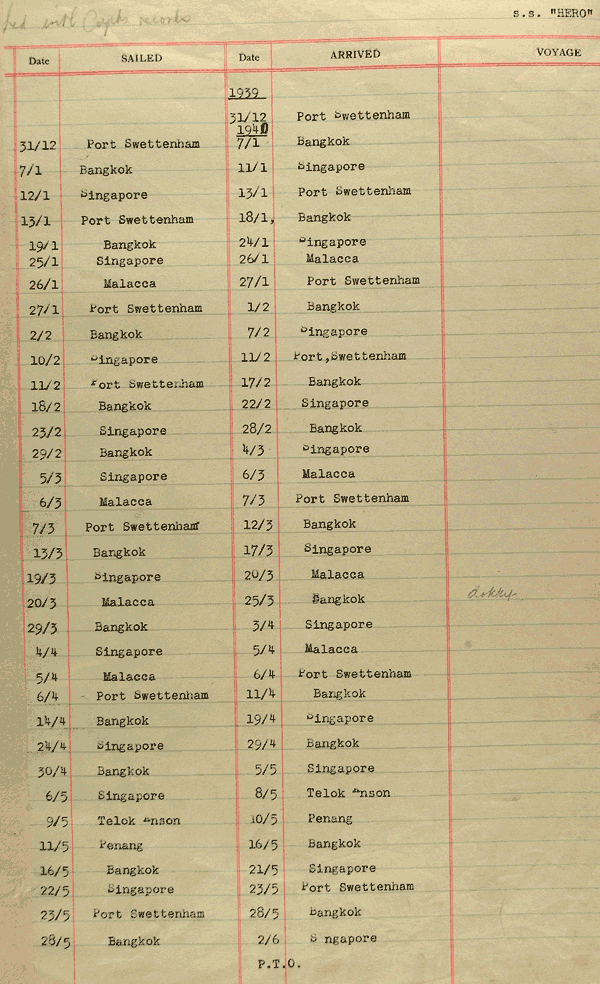 with Capts records
S.S. "HERO"
Date SAILED Date ARRIVED VOYAGE
1939
31/12 Port Swettenham
1940
31/12 Port Swettenham 7/1 Bangkok
7/1 Bangkok 11/1 Singapore
12/1 Singapore 13/1 Port Swettenham
13/1 Port Swettenham 18/1, Bangkok
19/1 Bangkok 24/1 Singapore
25/1 Singapore 26/1 Malacca
26/1 Malacca 27/1 Port Swettenham
27/1 Port Swettenham 1/2 Bangkok
2/2 Bangkok 7/2 Singapore
10/2 Singapore 11/2 Port,Swettenham
11/2 Port Swettenham 17/2 Bangkok
18/2 Bangkok 22/2 Singapore
23/2 Singapore 28/2 Bangkok
29/2 Bangkok 4/3 Singapore
5/3 Singapore 6/3 Malacca
6/3 Malacca 7/3 Port Swettenham
7/3 Port Swettenham 12/3 Bangkok
13/3 Bangkok 17/3 Singapore
19/3 Singapore 20/3 Malacca
20/3 Malacca 25/3 Bangkok
29/3 Bangkok 3/4 Singapore
4/4 Singapore 5/4 Malacca
5/4 Malacca 6/4 Port Swettenham
6/4 Port Swettenham 11/4 Bangkok
14/4 Bangkok 19/4 Singapore
24/4 Singapore 29/4 Bangkok
30/4 Bangkok 5/5 Singapore
6/5 Singapore 8/5 Telok Anson
9/5 Telok Anson 10/5 Penang
11/5 Penang 16/5 Bangkok
16/5 Bangkok 21/5 Singapore
22/5 Singapore 23/5 Port Swettenham
23/5 Port Swettenham 28/5 Bangkok
28/5 Bangkok 2/6 S ngapore
P.T.O.